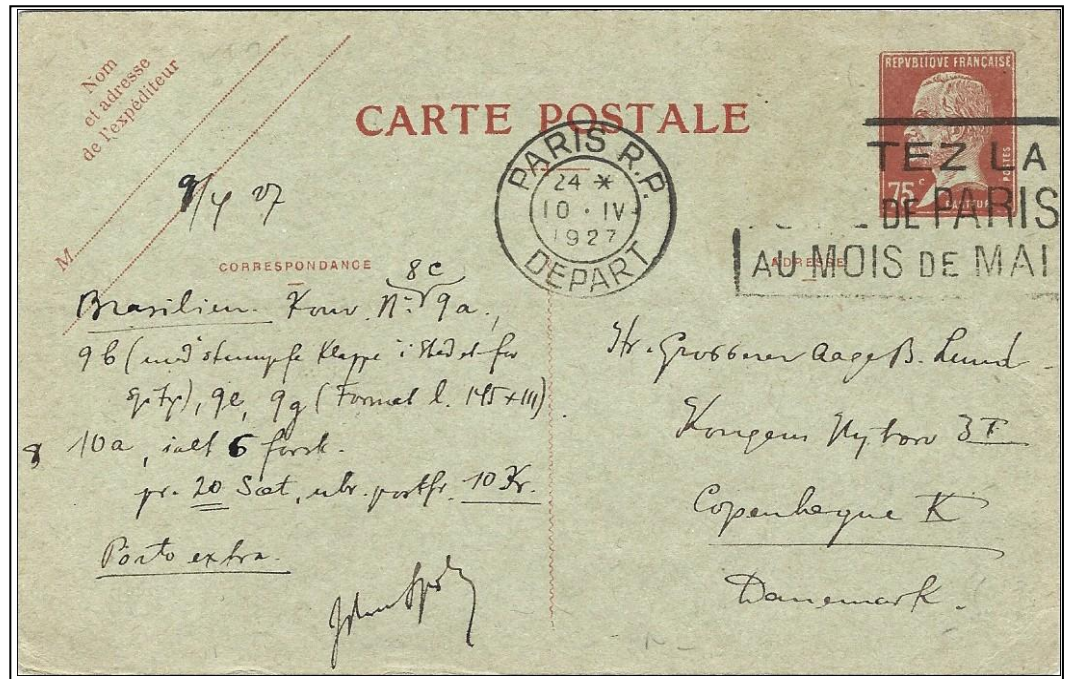 Nom
et adresse
de l'expéditeur
M.
CARTE POSTALE
REPVBLIQVE FRANÇAISE
75c
POSTES
PASTEUR
PARIS R.P.
24 *
10 • IV •
1927
DEPART
TEZ LA
DE PARIS
AU MOIS DE MAI
9/4 27
CORRESPONDANCE
ADRESSE
8c
Brasilien. Kouv. No 9a,
9b (med stumpfe Klappe i Stedet for
), 9e, 9g (Format l. 145 × 111)
8 10a, ialt 6 forsk.
pr. 20 Sæt, ubr. portfr. 10 Kr.
Porto extra.
Hr. Grosserer Aage B. Lund
Kongens Nytorv 3
Copenhague K
Danemark.